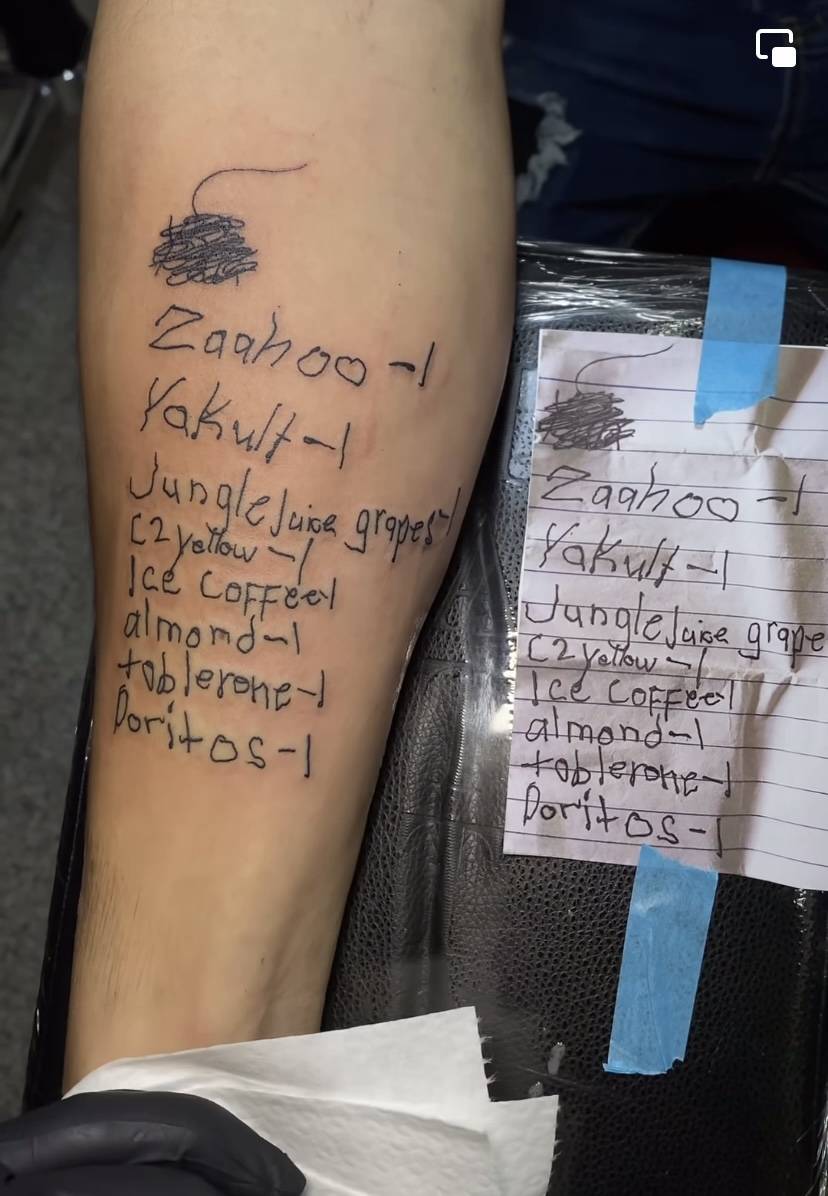 Zaahoo -1
Yakult -1
Jungle Juice grapes-1
C2 yellow -1
Ice Coffee-1
almond-1
toblerone-1
Doritos-1
Zaahoo -1
Yakult -1
Jungle Juice grape
C2 yellow -1
Ice Coffee-1
almond-1
toblerone-1
Doritos-1